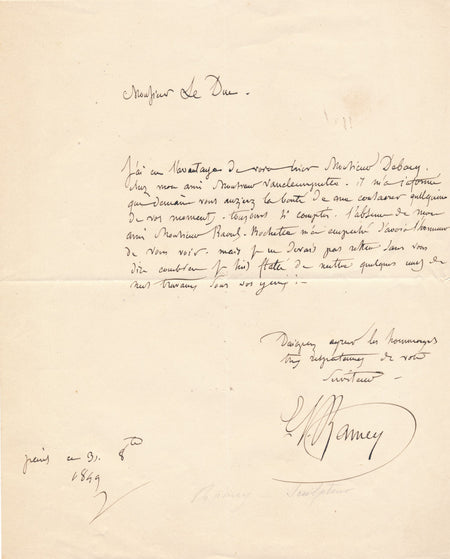 Monsieur Le Duc.
J'ai eu l'avantage de voir hier Monsieur Debay
chez mon ami Monsieur Vaucleuny. il m'a informé
que demain vous auriez la bonté de me consacrer quelqu'un
de vos moments. toujours si comptés. l'absence de mon
ami Monsieur Raoul. Rochette m'a empeché d'avoir l'honneur
de vous voir. mais je ne devais pas rester sans vous
dire combien je suis flatté de mettre quelques uns de
mes travaux sous vos yeux! -
Daignez agréer les hommages
très respectueux de votre
Serviteur -
E. Ramey
paris ce 31. 8bre
1849
Ramey Sculpteur